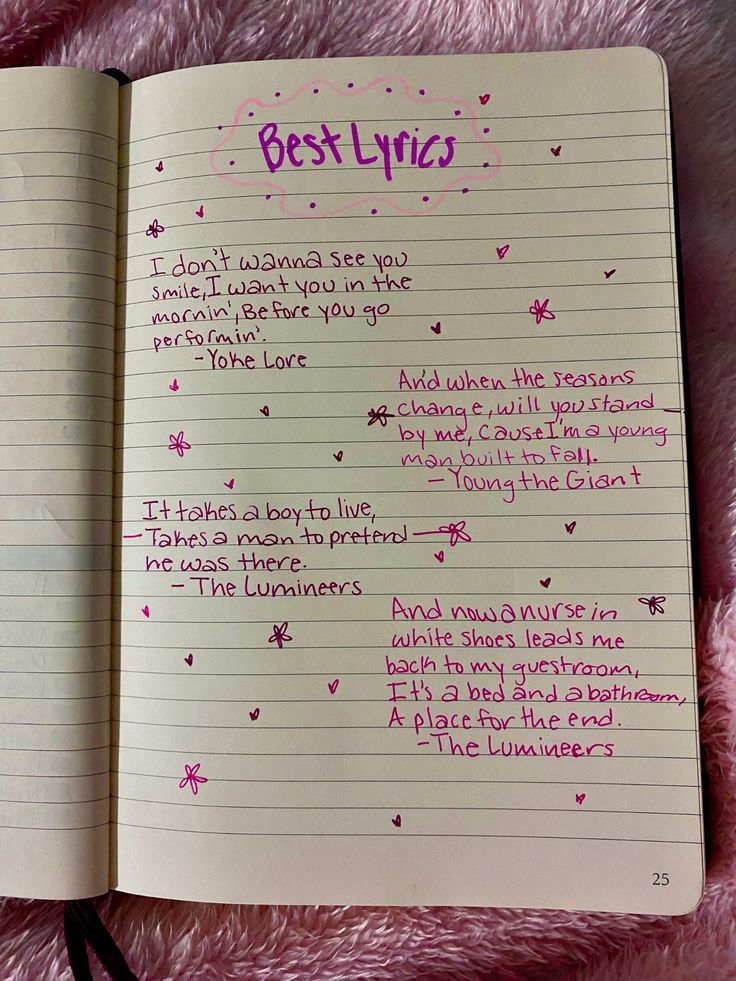 Best Lyrics
I don't wanna see you
smile, I want you in the
mornin', Before you go
performin'.
- Yoke Lore
And when the seasons
change, will you stand
by me, Cause I'm a young
man built to fall.
- Young the Giant
It takes a boy to live,
Takes a man to pretend
he was there.
- The Lumineers
And now a nurse in
white shoes leads me
back to my guestroom,
It's a bed and a bathroom,
A place for the end.
- The Lumineers
25